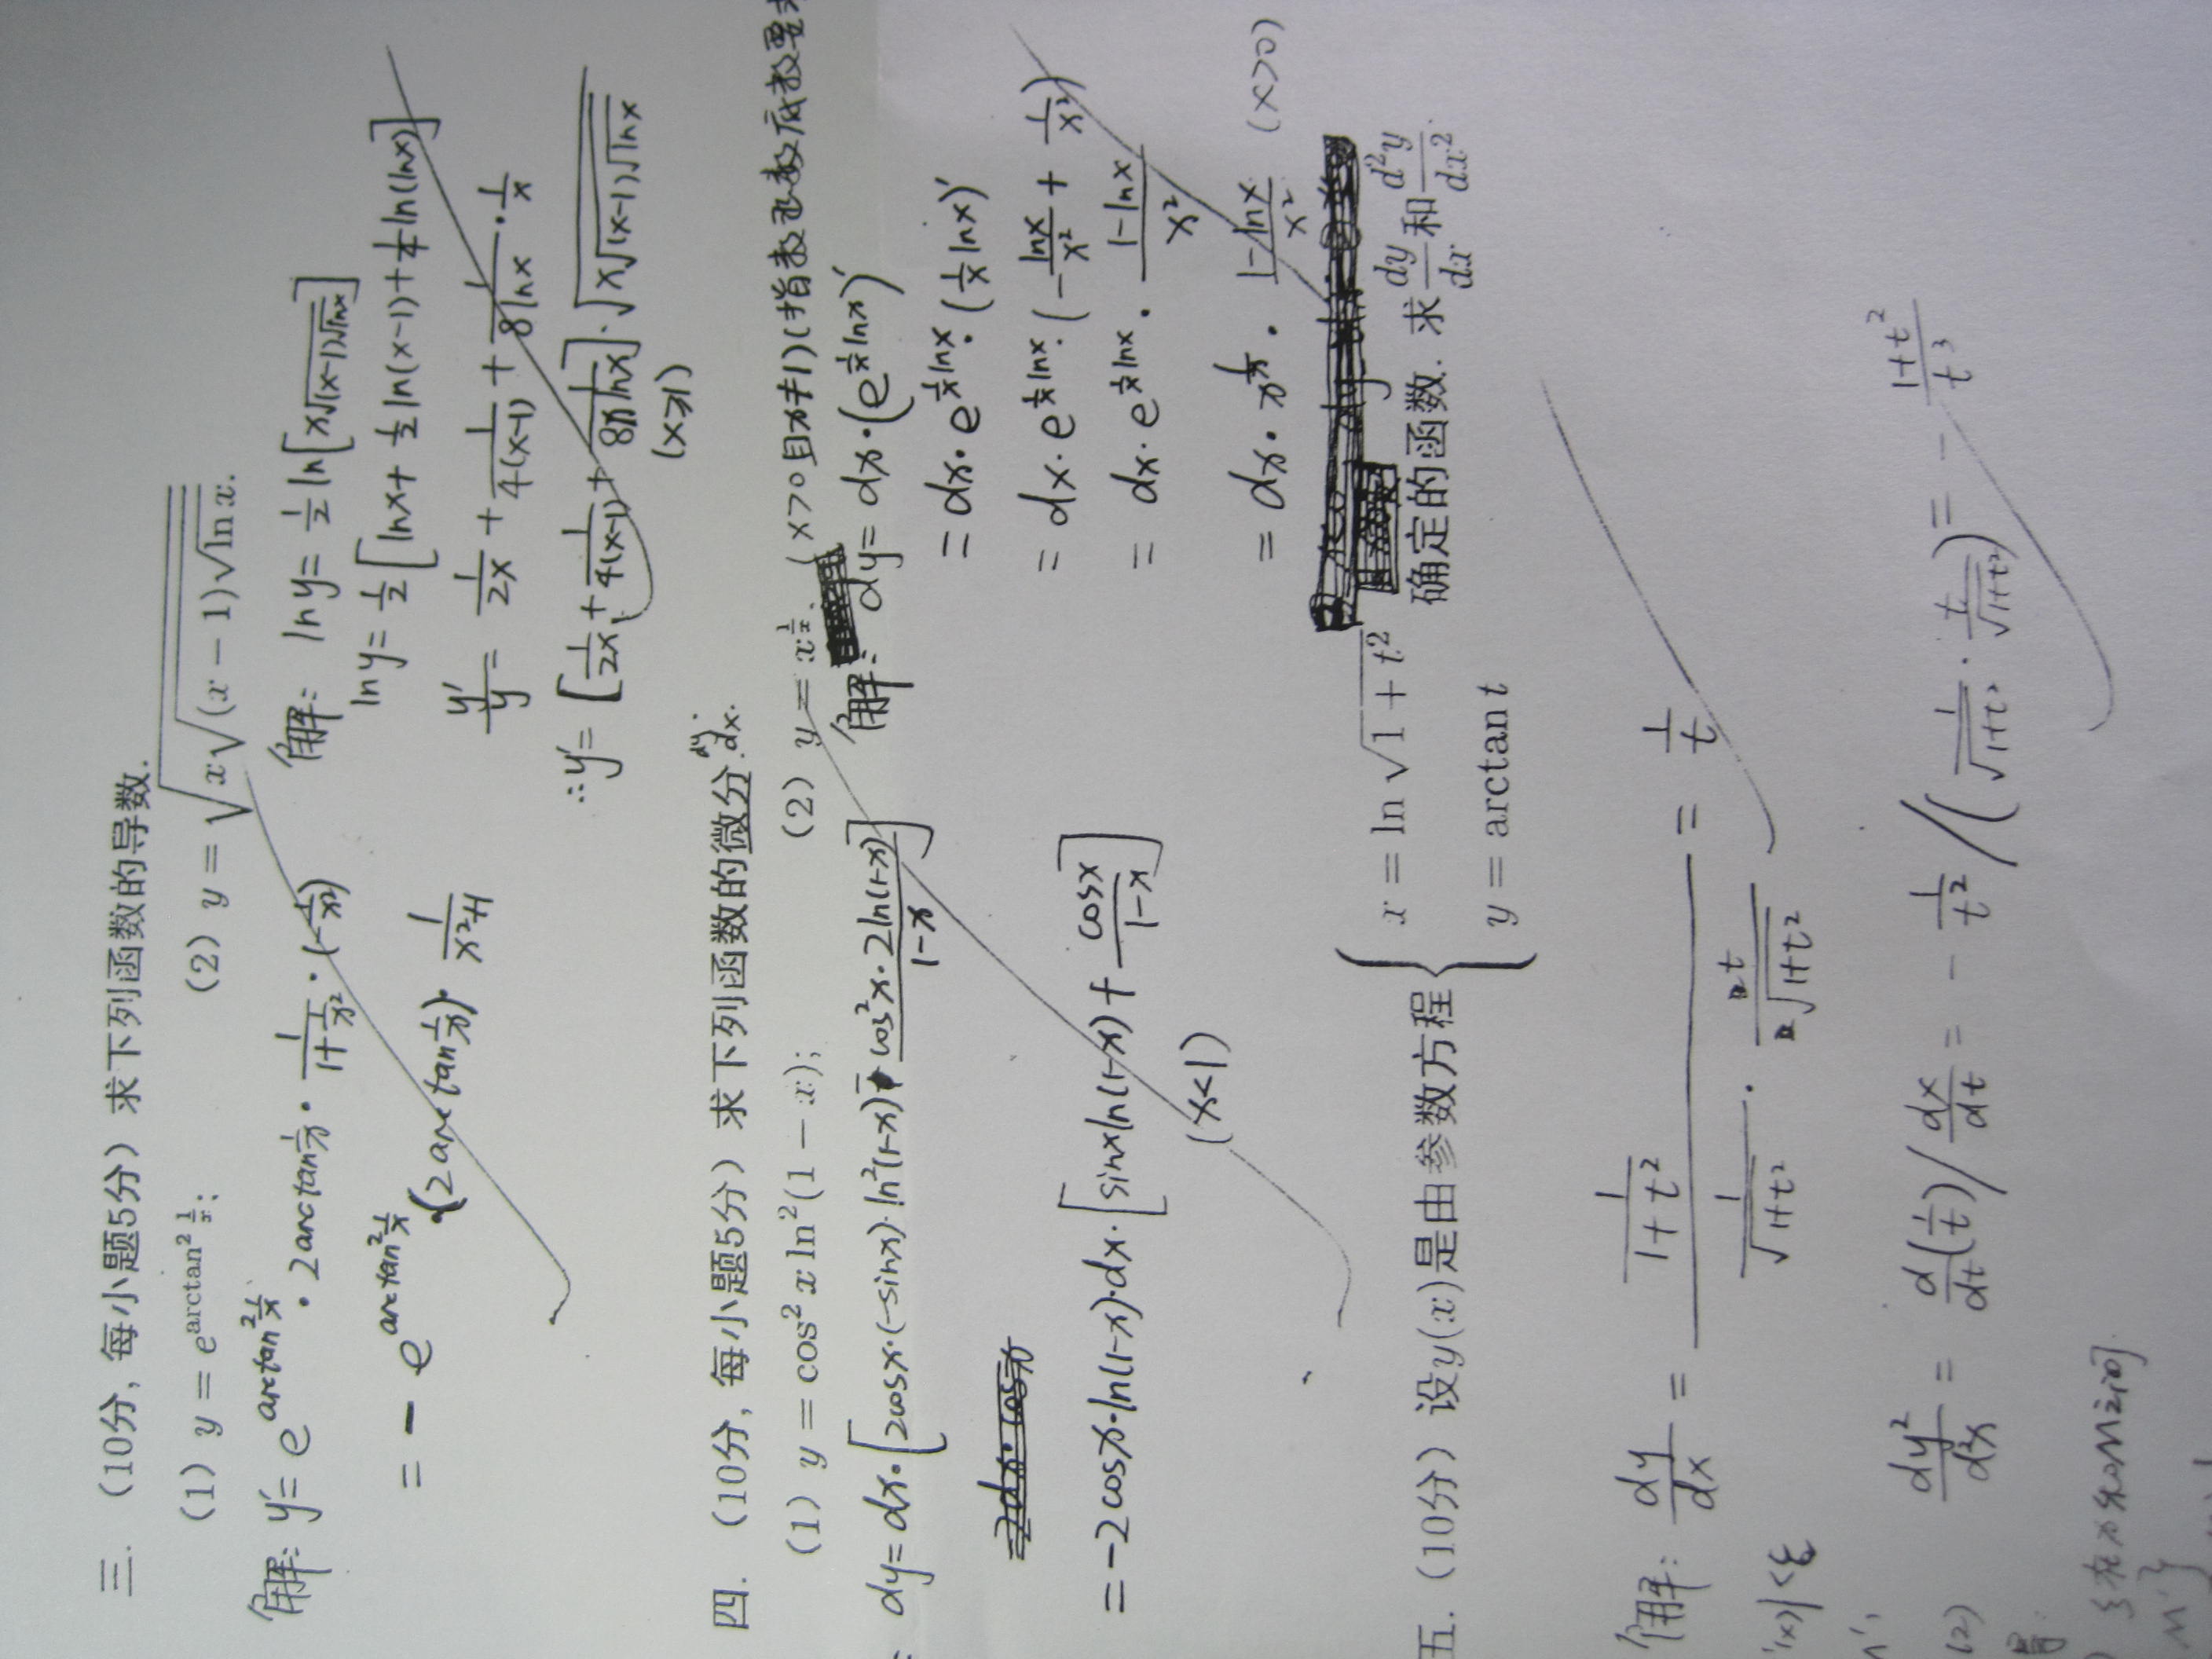 三. （10分, 每小题5分）求下列函数的导数.
（1）y = e^{arctan² 1/x};
（2）y = √(x√((x − 1)√(ln x))).
解: y′= e^{arctan² 1/x} · 2arctan 1/x · 1/(1+1/x²) · (−1/x²)
= − e^{arctan² 1/x} ·(2arctan 1/x)· 1/(x²+1)
解: ln y = 1/2 ln[x√((x−1)√(ln x))]
ln y = 1/2 [ln x + 1/2 ln(x−1) + 1/4 ln(ln x)]
y′/y = 1/(2x) + 1/(4(x−1)) + 1/(8 ln x) · 1/x
∴ y′= [1/(2x) + 1/(4(x−1)) + 1/(8x ln x)] · √(x√((x−1)√(ln x)))
(x≥1)
四. （10分, 每小题5分）求下列函数的微分. dy dx.
（1）y = cos² x ln²(1 − x);
（2）y = x^{1/x}. (x>0且x≠1)(指数函数底数要求
dy = dx·[2cosx·(−sinx)·ln²(1−x) − cos²x·2ln(1−x)/(1−x)]
2dx·cosx
= −2cosx·ln(1−x)·dx·[sinx ln(1−x) + cosx/(1−x)]
(x<1)
解: dy = dx·(e^{1/x lnx})′
= dx·e^{1/x lnx}·(1/x lnx)′
= dx·e^{1/x lnx}·(−lnx/x² + 1/x²)
= dx·e^{1/x lnx}·(1−lnx)/x²
= dx·x^{1/x}·(1−lnx)/x² (x>0)
五.（10分）设y(x)是由参数方程{ x = ln √(1 + t²)
y = arctan t
确定的函数. 求dy/dx和d²y/dx².
解: dy/dx = (1/(1+t²)) / (1/√(1+t²) · t/√(1+t²)) = 1/t
′(x)|<ε
M′,
dy²/d²x = d/dt(1/t)/dx/dt = −1/t²/(1/√(1+t²) · t/√(1+t²)) = −(1+t²)/t³
(2)
ξ在x和M之间.
M′}